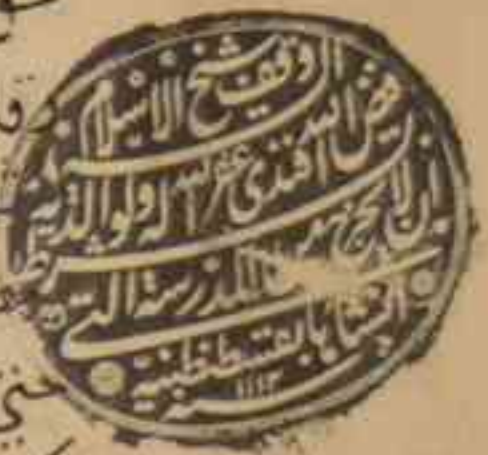 وقف شيخ الاسلام
السيد فيض الله افندى غفر الله له ولوالديه
بشرط ان لا يخرج من المدرسة التى
انشاها بقسطنطينية
سنه ١١١٣